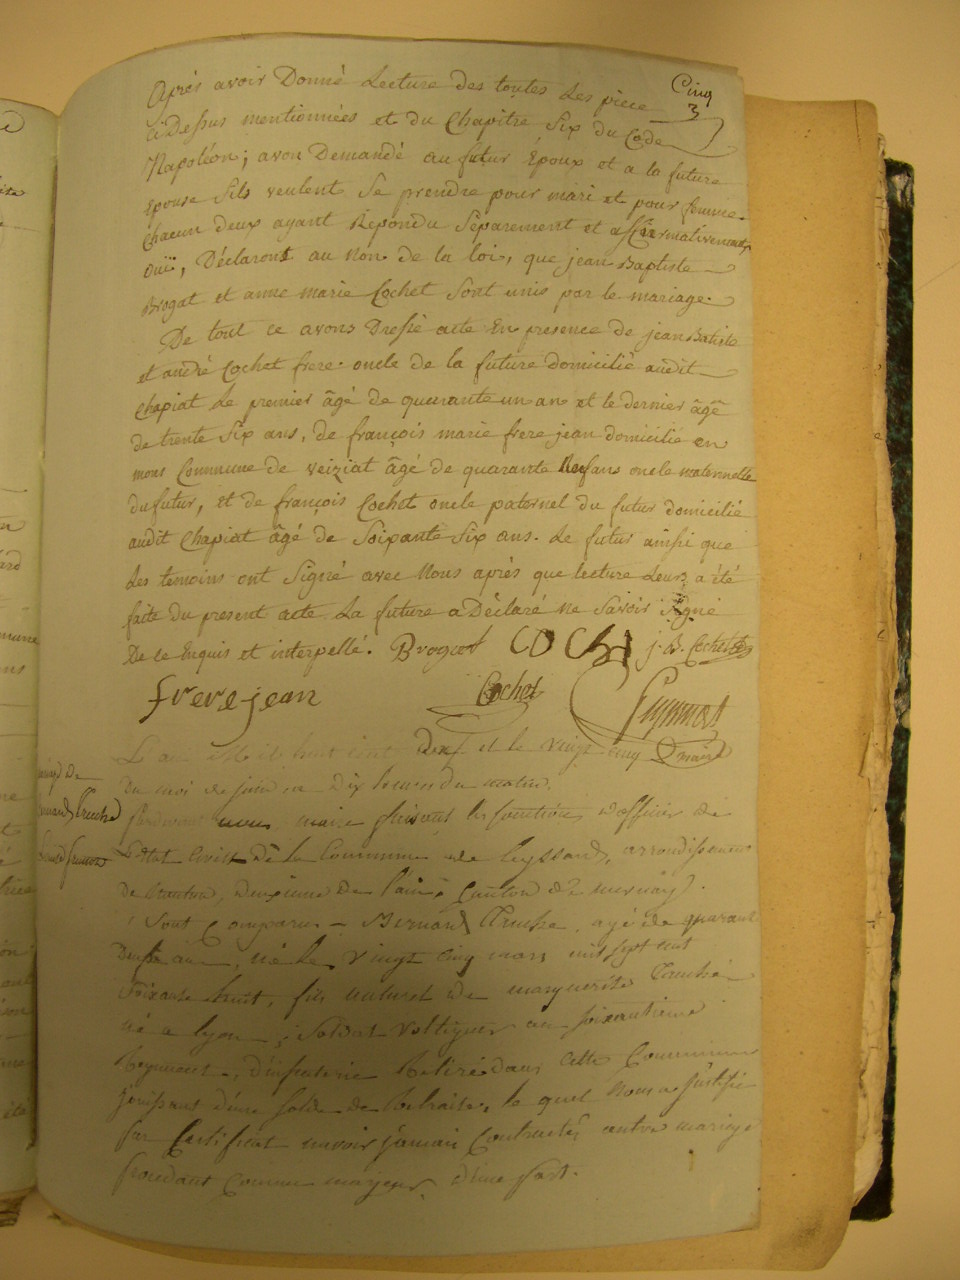 Cinq
3
Après avoir Donné Lecture des toutes Les piece
ci Dessus mentionnées et du Chapitre Six du Code
Napoléon; avon Demandé au futur Époux et a la future
Epouse Sils veulent Se prendre pour mari et pour femme.
Chacun deux ayant Répondu Séparement et affirmativement
oui, Déclarons au Non de la loi, que jean Baptiste
Brogat et anne marie Cochet Sont unis par le mariage.
De tout ce avons Dressé acte En presence de jean Batiste
et andré Cochet frere oncle de la future domicilié audit
Chapiat Le premier âgé de quarante un an et le dernier âgé
de trente Six ans, de françois marie frere jean domicilié en
mons Commune de veiziat âgé de quarante ans oncle maternelle
du futur, et de françois Cochet oncle paternel du futur domicilié
audit Chapiat âgé de Soixante Six ans. Le futur ainsi que
Les temoins ont Signé avec Nous après que lecture Leurs a été
faite du present acte La future a Déclaré ne Savoir Signé
De ce Enquis et interpellé. Brogat COCHE j. B. Cochet
frere jean Cochet
maire
L'an Mil huit cent et le vingt cinq
Du moi de juin a Dix heures du matin.
Pardevant nous maire faisant les fonctions d'officier de
L'Etat Civil De la Commune de Leyssard, arrondissement
de Nantua, De l'ain, Canton
Sont Comparu Bernard agé de quarante
ans, né le vingt cinq mars mil sept cent
Soixante huit, fils naturel de marguerite
né a lyon, Soldat Voltigeur au Soixantieme
Regiment d'infanterie Retiré dans Cette Commune
jouissant d'une Solde de Retraite, le quel Nous a justifié
par Certificat navoir jamais Contracté autre mariage
Comme majeur d'une part.